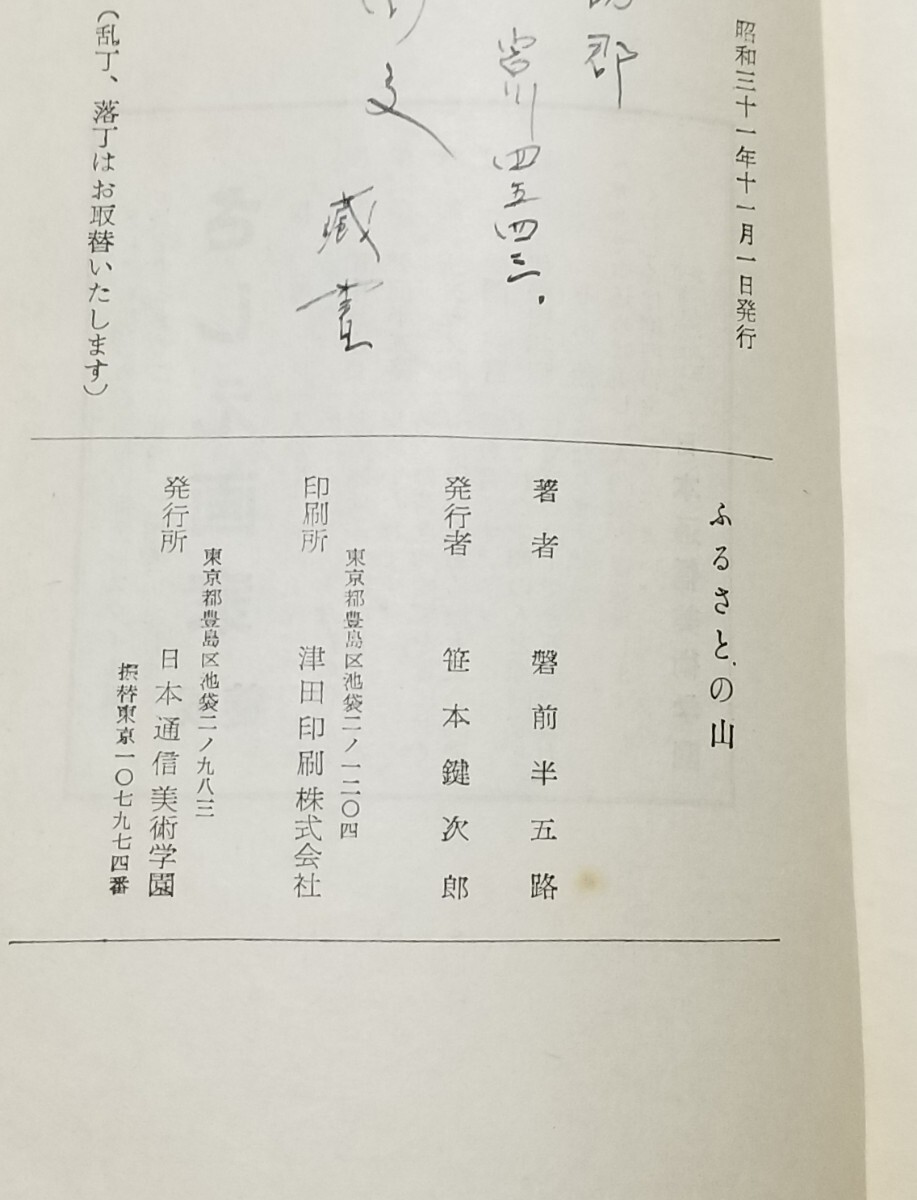 昭和三十一年十一月一日発行
郡
宮川四五四三.
文
蔵書
（乱丁、落丁はお取替いたします）
ふるさとの山
著者 磐前半五路
発行者 笹本鍵次郎
東京都豊島区池袋二ノ一二〇四
印刷所 津田印刷株式会社
東京都豊島区池袋二ノ九八三
発行所 日本通信美術学園
振替東京一〇七九七四番